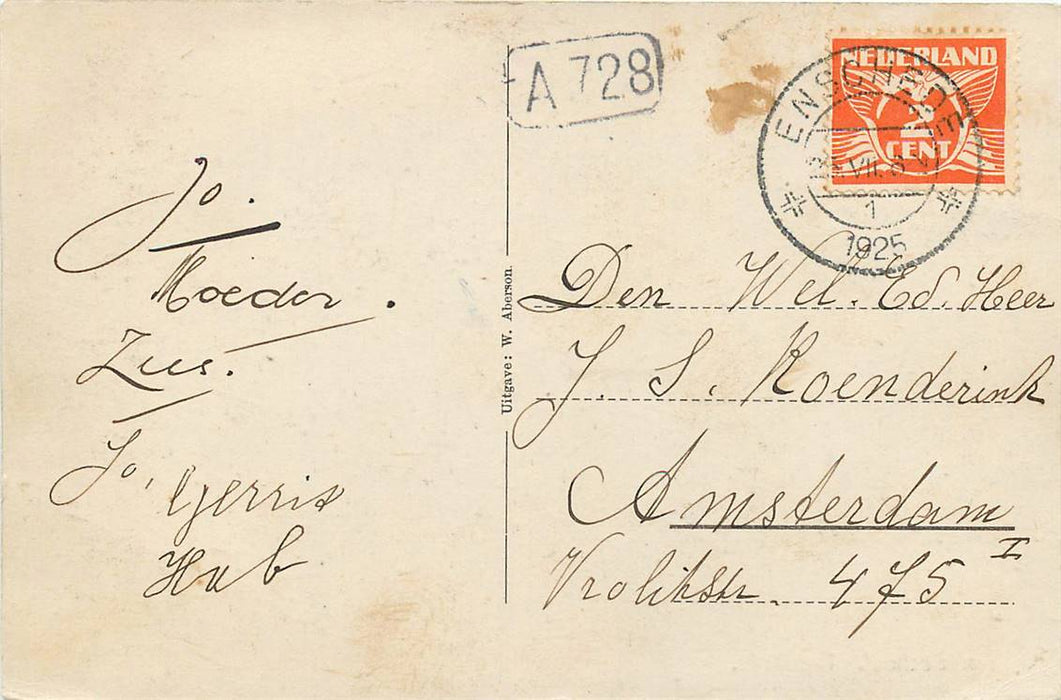 A 728
NEDERLAND
2
CENT
ENSCHEDE
VII.
1
1925
Jo.
Moeder.
Zus.
Jo,
Gerrit
Hub
Uitgave: W. Aberson.
Den Wel. Ed. Heer
J. S. Koenderink
Amsterdam
Vrolikstr. 475 I